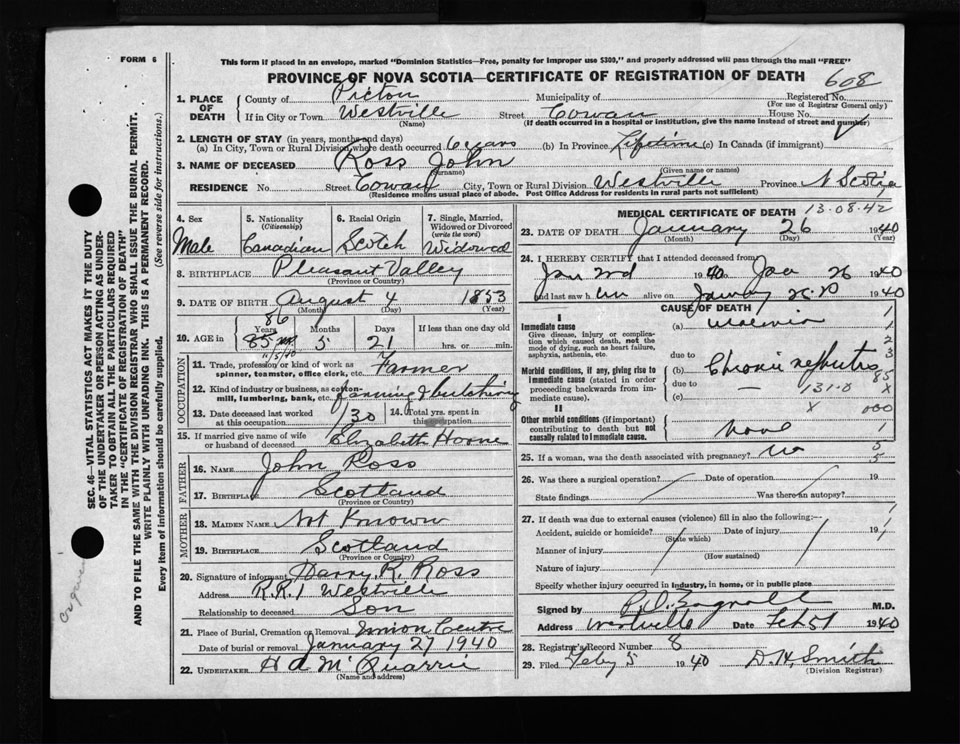 FORM 6
This form if placed in an envelope, marked "Dominion Statistics—Free, penalty for improper use $300," and properly addressed will pass through the mail "FREE"
PROVINCE OF NOVA SCOTIA—CERTIFICATE OF REGISTRATION OF DEATH
608
1. PLACE OF DEATH
County of Pictou Municipality of Registered No.
(For use of Registrar General only)
If in City or Town Westville Street Cowan House No.
(Name) (If death occurred in a hospital or institution, give the name instead of street and number)
2. LENGTH OF STAY (in years, months and days)
(a) In City, Town or Rural Division where death occurred 6 years (b) In Province Lifetime (c) In Canada (if immigrant)
3. NAME OF DECEASED Ross John
(Surname) (Given name or names)
RESIDENCE No. Street Cowan City, Town or Rural Division Westville Province N Scotia
(Residence means usual place of abode. Post Office Address for residents in rural parts not sufficient)
4. Sex Male
5. Nationality (Citizenship) Canadian
6. Racial Origin Scotch
7. Single, Married, Widowed or Divorced (write the word) Widowed
8. BIRTHPLACE Pleasant Valley
(Province or Country)
9. DATE OF BIRTH August 4 1853
(Month) (Day) (Year)
10. AGE in 86 85 Years 5 Months 21 Days If less than one day old hrs. or min.
11/5/40
OCCUPATION
11. Trade, profession or kind of work as spinner, teamster, office clerk, etc. Farmer
12. Kind of industry or business, as cotton-mill, lumbering, bank, etc. farming & butchering
13. Date deceased last worked at this occupation 130
14. Total yrs. spent in this occupation
15. If married give name of wife or husband of deceased Elizabeth Horne
FATHER
16. NAME John Ross
17. BIRTHPLACE Scotland
(Province or Country)
MOTHER
18. MAIDEN NAME Not Known
19. BIRTHPLACE Scotland
(Province or Country)
20. Signature of informant Harry R. Ross
Address R.R.1 Westville
Relationship to deceased Son
21. Place of Burial, Cremation or Removal Union Centre
Date of burial or removal January 27 1940
22. UNDERTAKER H d McQuarrie
(Name and Address)
MEDICAL CERTIFICATE OF DEATH 13-08-42
23. DATE OF DEATH January 26 1940
(Month) (Day) (Year)
24. I HEREBY CERTIFY that I attended deceased from
Jan 2nd 1940 Jan 26 1940
and last saw h im alive on 1940
CAUSE OF DEATH
I
Immediate cause
Give disease, injury or complication which caused death, not the mode of dying, such as heart failure, asphyxia, asthenia, etc.
(a) Uraemia
due to
Morbid conditions, if any, giving rise to immediate cause (stated in order proceeding backwards from immediate cause).
(b) Chronic nephritis
due to
(c)
131-0
1
2
3
85
X
X 000
II
Other morbid conditions (if important) contributing to death but not causally related to immediate cause.
none 1
25. If a woman, was the death associated with pregnancy? no 5
5
26. Was there a surgical operation? Date of operation 19
State findings Was there an autopsy?
27. If death was due to external causes (violence) fill in also the following:—
Accident, suicide or homicide? Date of injury 19
(State which)
Manner of injury
(How sustained)
Nature of injury
Specify whether injury occurred in Industry, in home, or in public place
Signed by M.D.
Address Westville Date Feb 5 1940
28. Registrar's Record Number 8
29. Filed Feby 5 1940 D. H. Smith
(Division Registrar)
SEC. 46—VITAL STATISTICS ACT MAKES IT THE DUTY
OF THE UNDERTAKER OR PERSON ACTING AS UNDER-
TAKER TO OBTAIN ALL THE PARTICULARS REQUIRED
IN THE "CERTIFICATE OF REGISTRATION OF DEATH"
AND TO FILE THE SAME WITH THE DIVISION REGISTRAR WHO SHALL ISSUE THE BURIAL PERMIT.
WRITE PLAINLY WITH UNFADING INK. THIS IS A PERMANENT RECORD.
Every item of information should be carefully supplied. (See reverse side for instructions.)